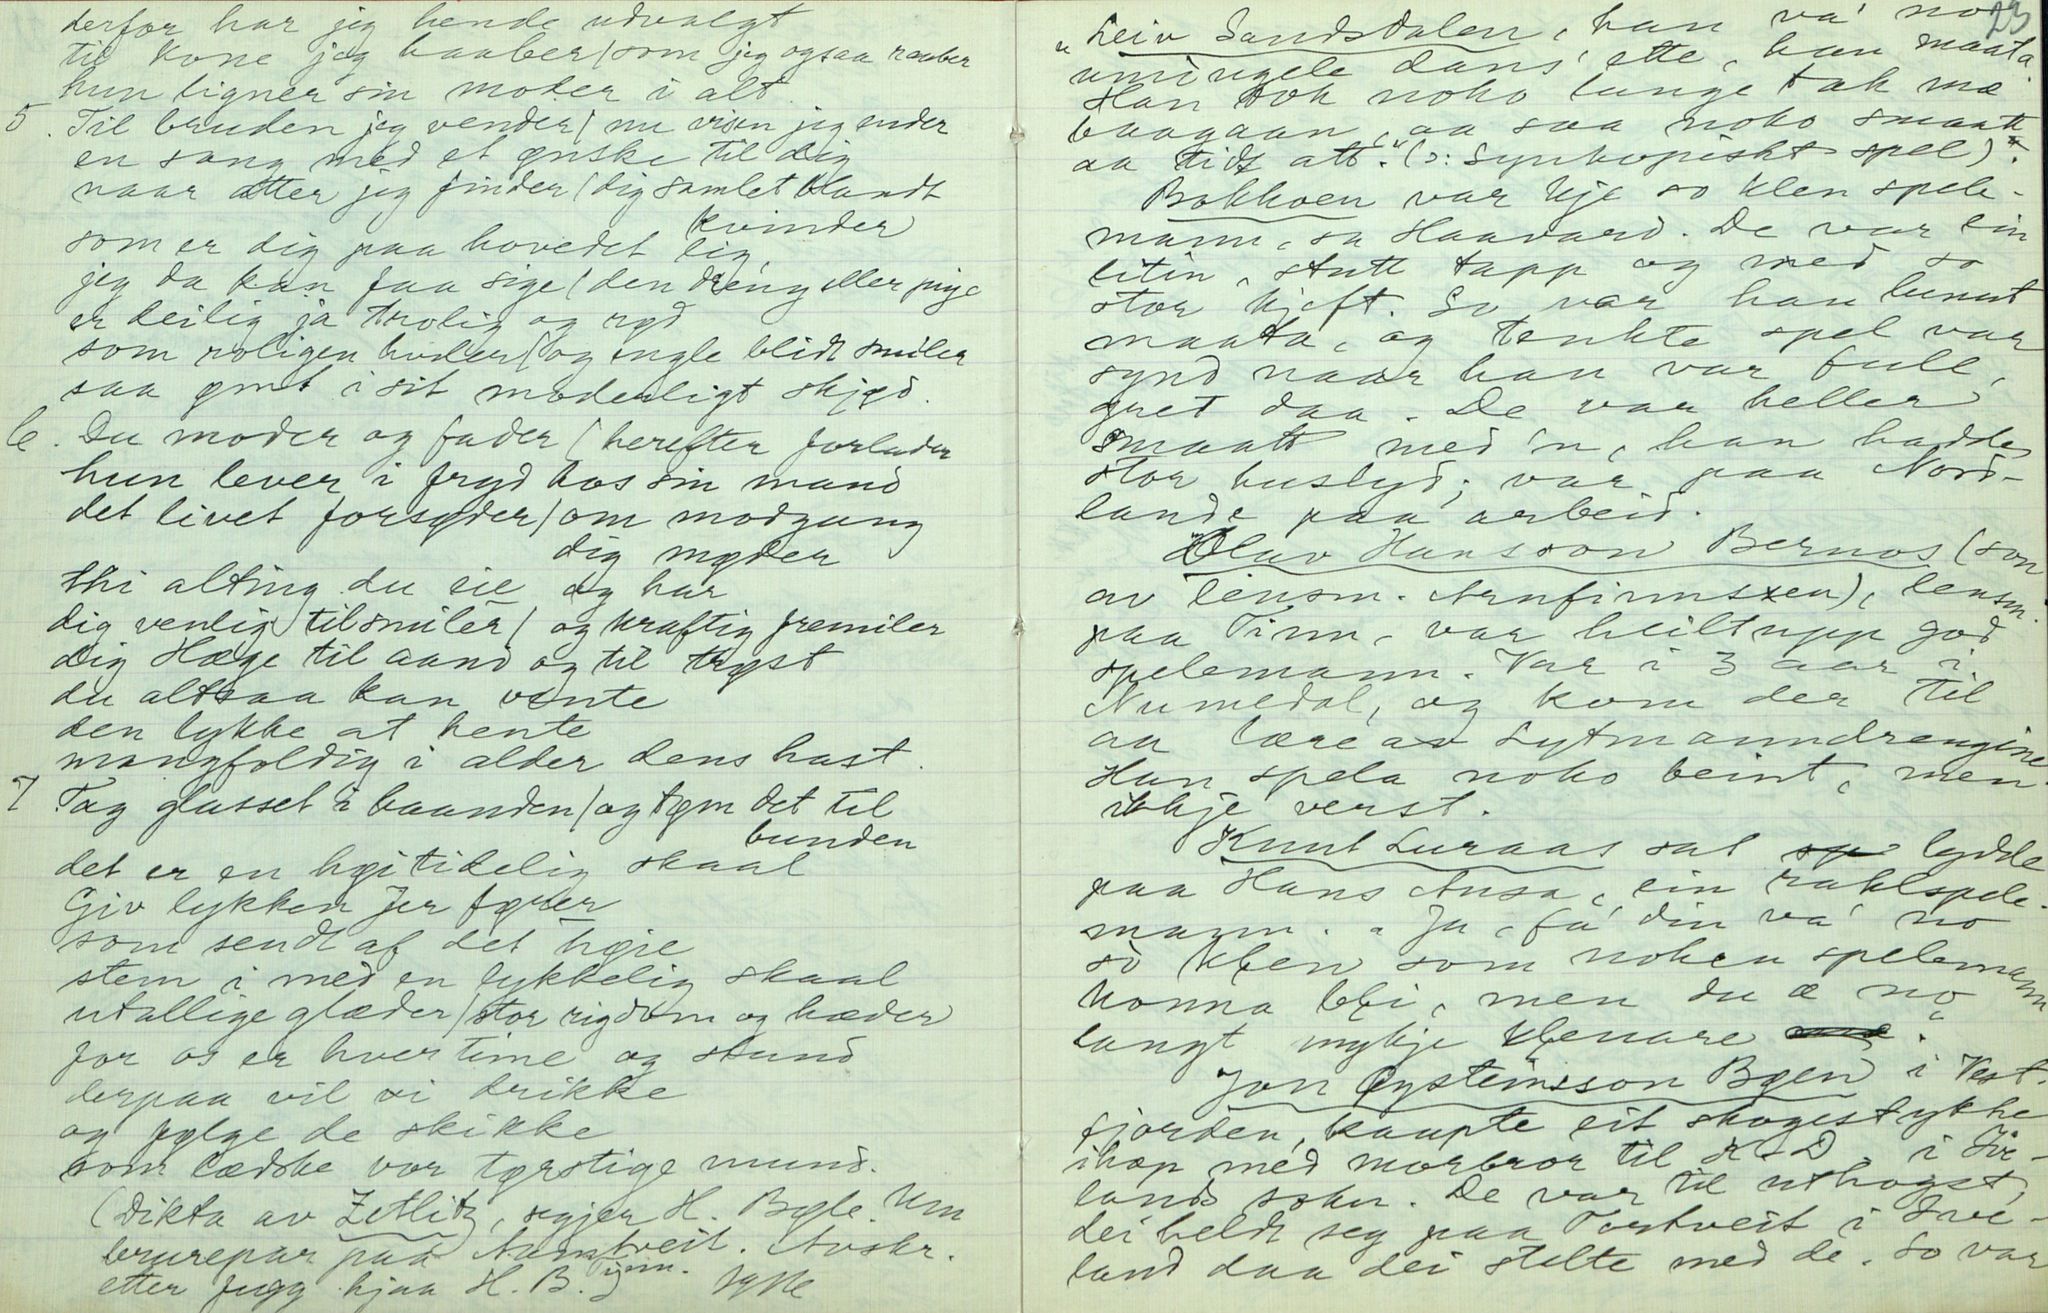 derfor har jeg hende udvalgt
til kone jeg haaber / som jeg ogsaa raaber
hun ligner sin moder i alt.
5. Til bruden jeg vender / nu visen jeg ender
en sang med et ønske til dig
naar atter jeg finder / dig samlet blandt
kvinder
som er dig paa hovedet lig,
jeg da kan faa sige / den dreng eller pige
er deilig ja trolig og rød
som roligen hviler / og engle blidt smiler
saa ømt i sit moderligt skjød.
6. Du moder og fader / herefter forlader
hun lever i fryd hos sin mand
det livet forsøder / om modgang
dig møder
thi alting du eie og har
dig venlig tilsmiler / og kraftig fremiler
dig Hæge til aand og til trøst
du altsaa kan vente
den lykke at hente
mangfoldig i alder dens hast.
7 Tag glasset i haanden / og tøm det til
bunden
det er en høitidelig skaal
Giv lykken Jer føier
som sendt af det høie
stem i med en lykkelig skaal
utallige glæder / stor rigdom og hæder
for os er hver time og stund
derpaa vil vi drikke
og følge de skikke
som lædske vor tørstige mund.
(Dikta av Zetlitz, segjer H. Bøle. Um
brurepar paa Aamtveit. Avskr.
etter hjaa H. B.)
23
"Leiv Sandsdalen, han va' no
umingele dans' ette, han maata.
Han tok noko lunge tak mæ
baagaan, aa saa noko smaatt
aa tidt att." (ɔ: Synkopiskt spel).
Bokkoen var kje so klen spele-
mann, sa Haavard. De var ein
litin, stutt tapp og med so
stor kjeft. So var han lunnt
maata, og tenkte spel var
synd naar han var full,
gret daa. De var heller
smaatt med 'n, han hadde
stor huslyd; var paa Nord-
lande paa arbeid.
Olav Hansson Bernos (son
av lensm. Arnfinnsen), lensm.
paa Tinn, var heiltupp god
spelemann. Var i 3 aar i
Numedal, og kom der til
aa lære av Lytmanndrengine.
Han spela noko beint, men
ikkje verst.
Knut Luraas sat lydde
paa Hans Ansa, ein rahlspele-
mann. "Ja, fa' din va' no
so klen som noken spelemann
konna bli, men du æ no
langt mykje klenare".
Jon Øysteinsson Bøen i Vest-
fjorden, kaupte eit skogestykke
ihop med morbror til H. D. i Ir-
lands sokn. De var til uthogst,
dei heldt seg paa Tortveit i Tve-
land daa dei stelte med de. So var